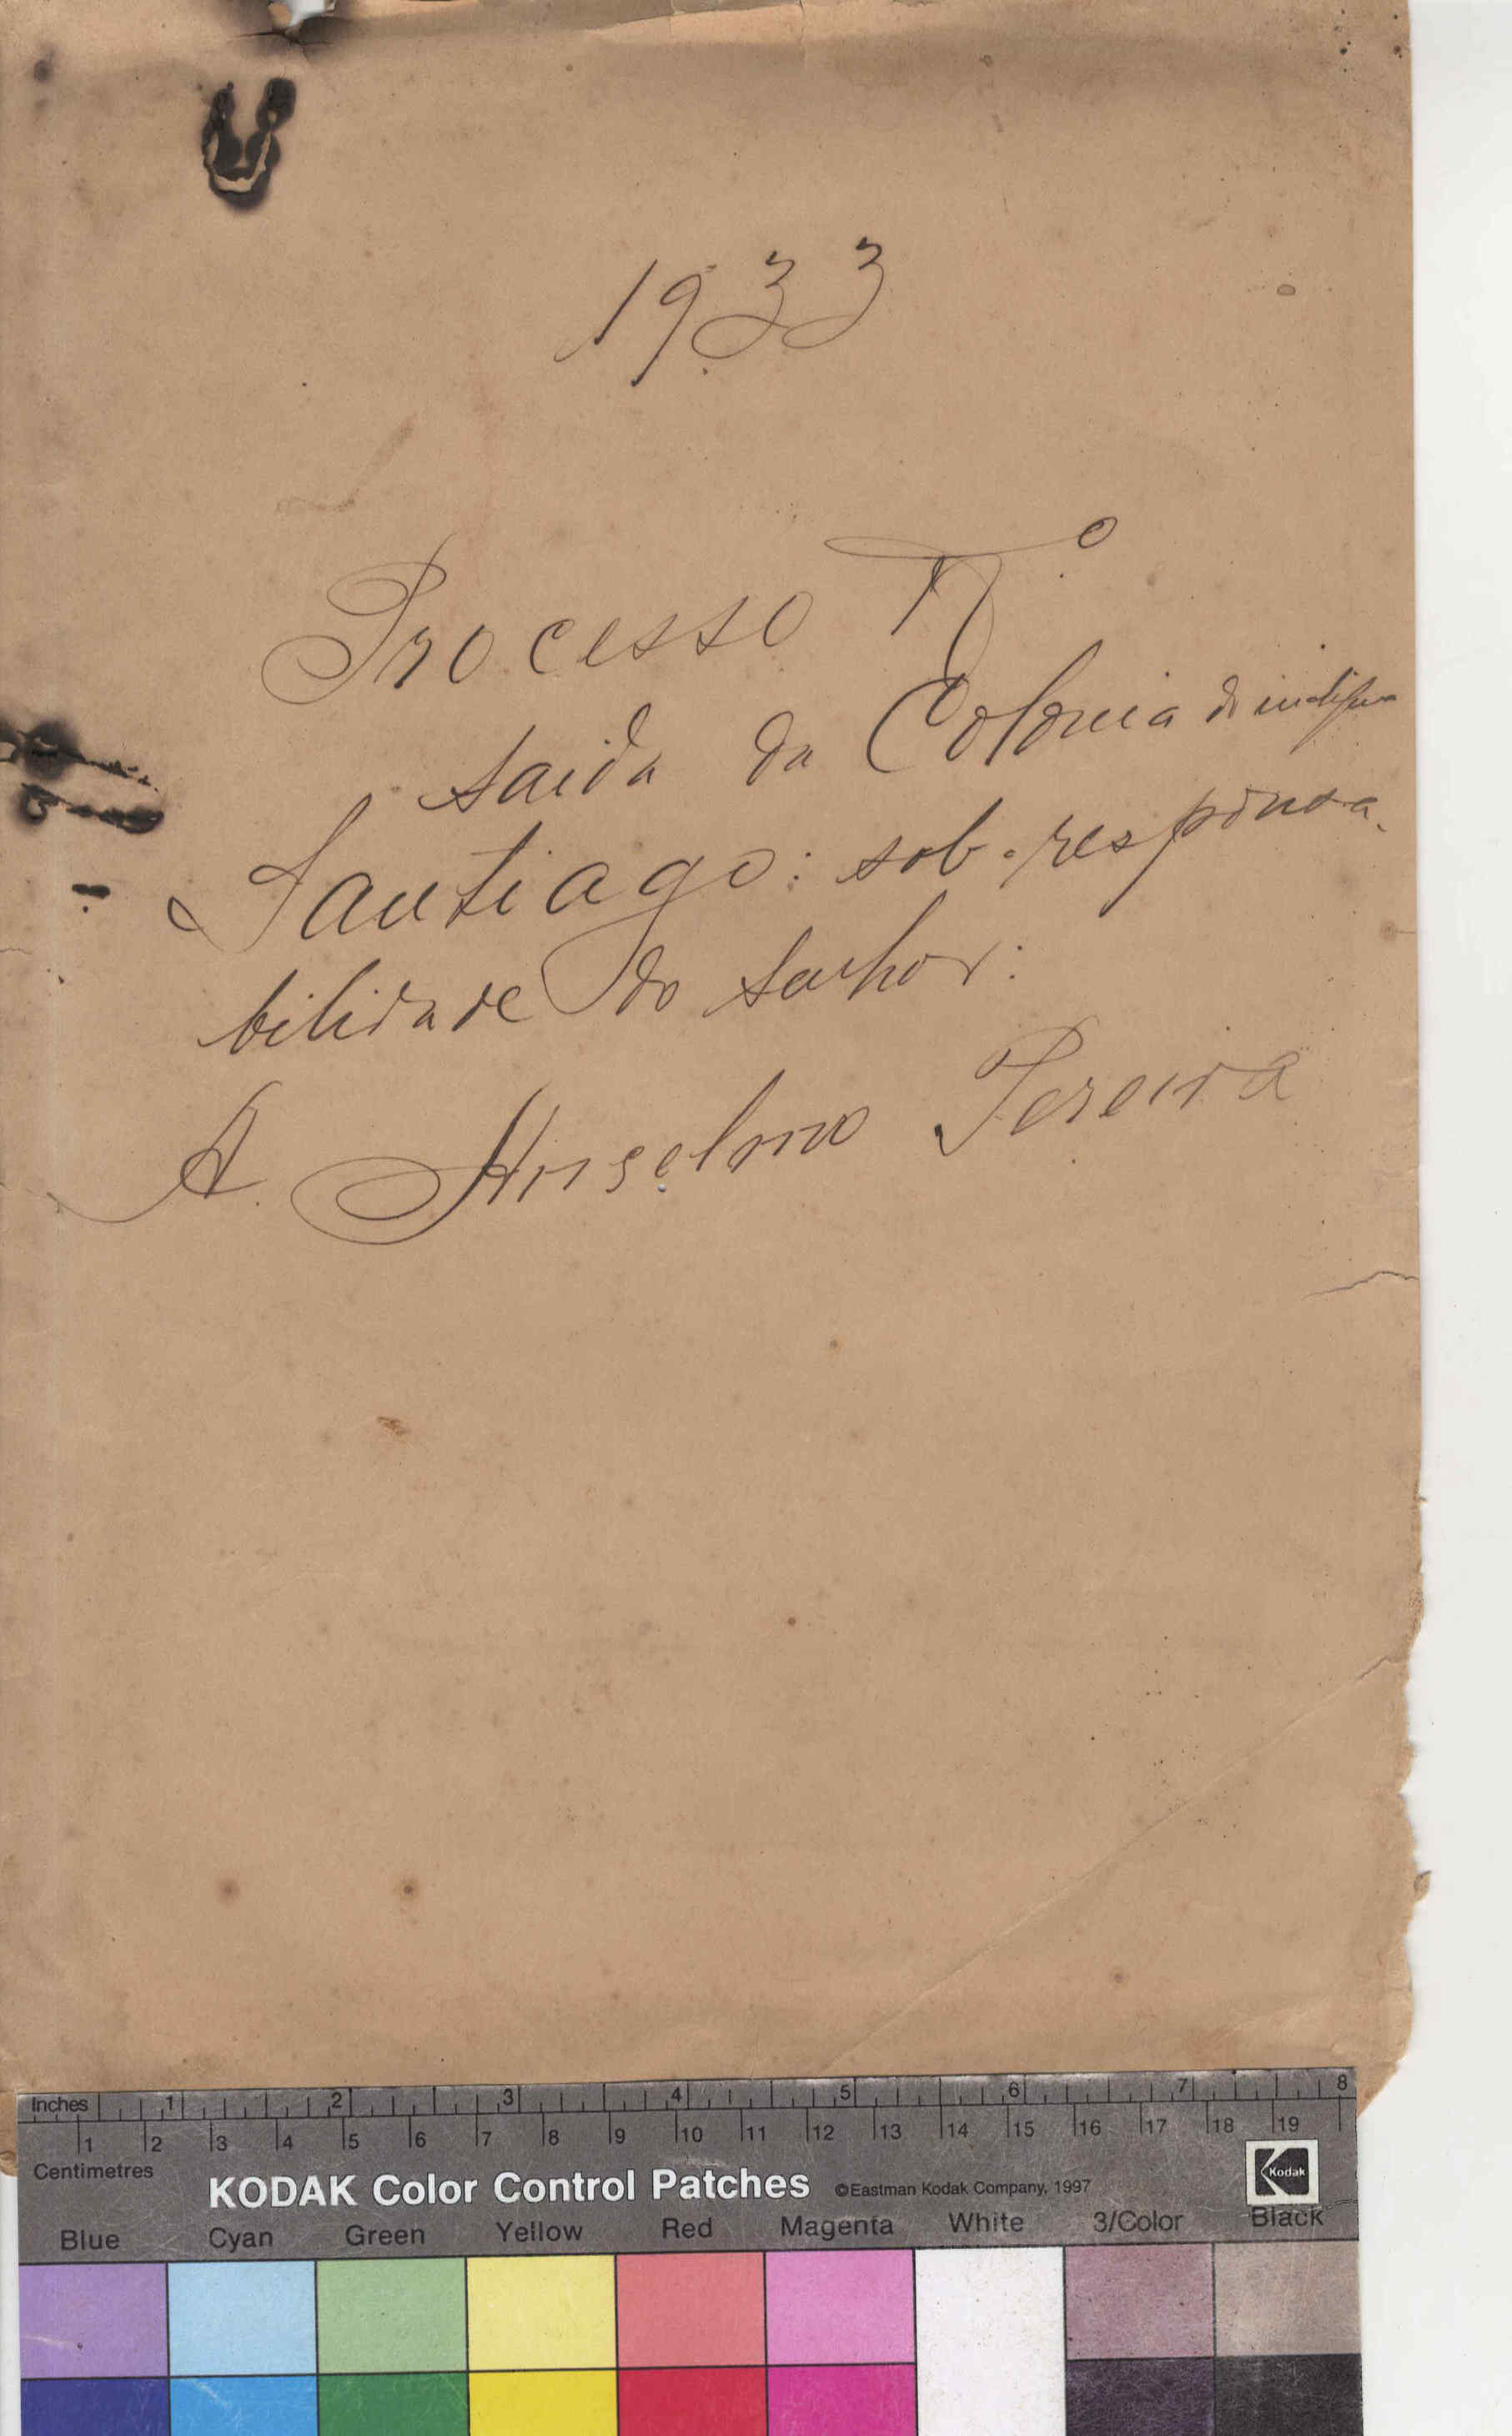 1933
Processo N.º
saida da Colonia do indigena
Santiago: sob responsa-
bilidade do senhor:
A. Anselmo Pereira
Inches 1 2 3 4 5 6 7 8
1 2 3 4 5 6 7 8 9 10 11 12 13 14 15 16 17 18 19
Centimetres
KODAK Color Control Patches ©Eastman Kodak Company, 1997 Kodak
Blue Cyan Green Yellow Red Magenta White 3/Color Black